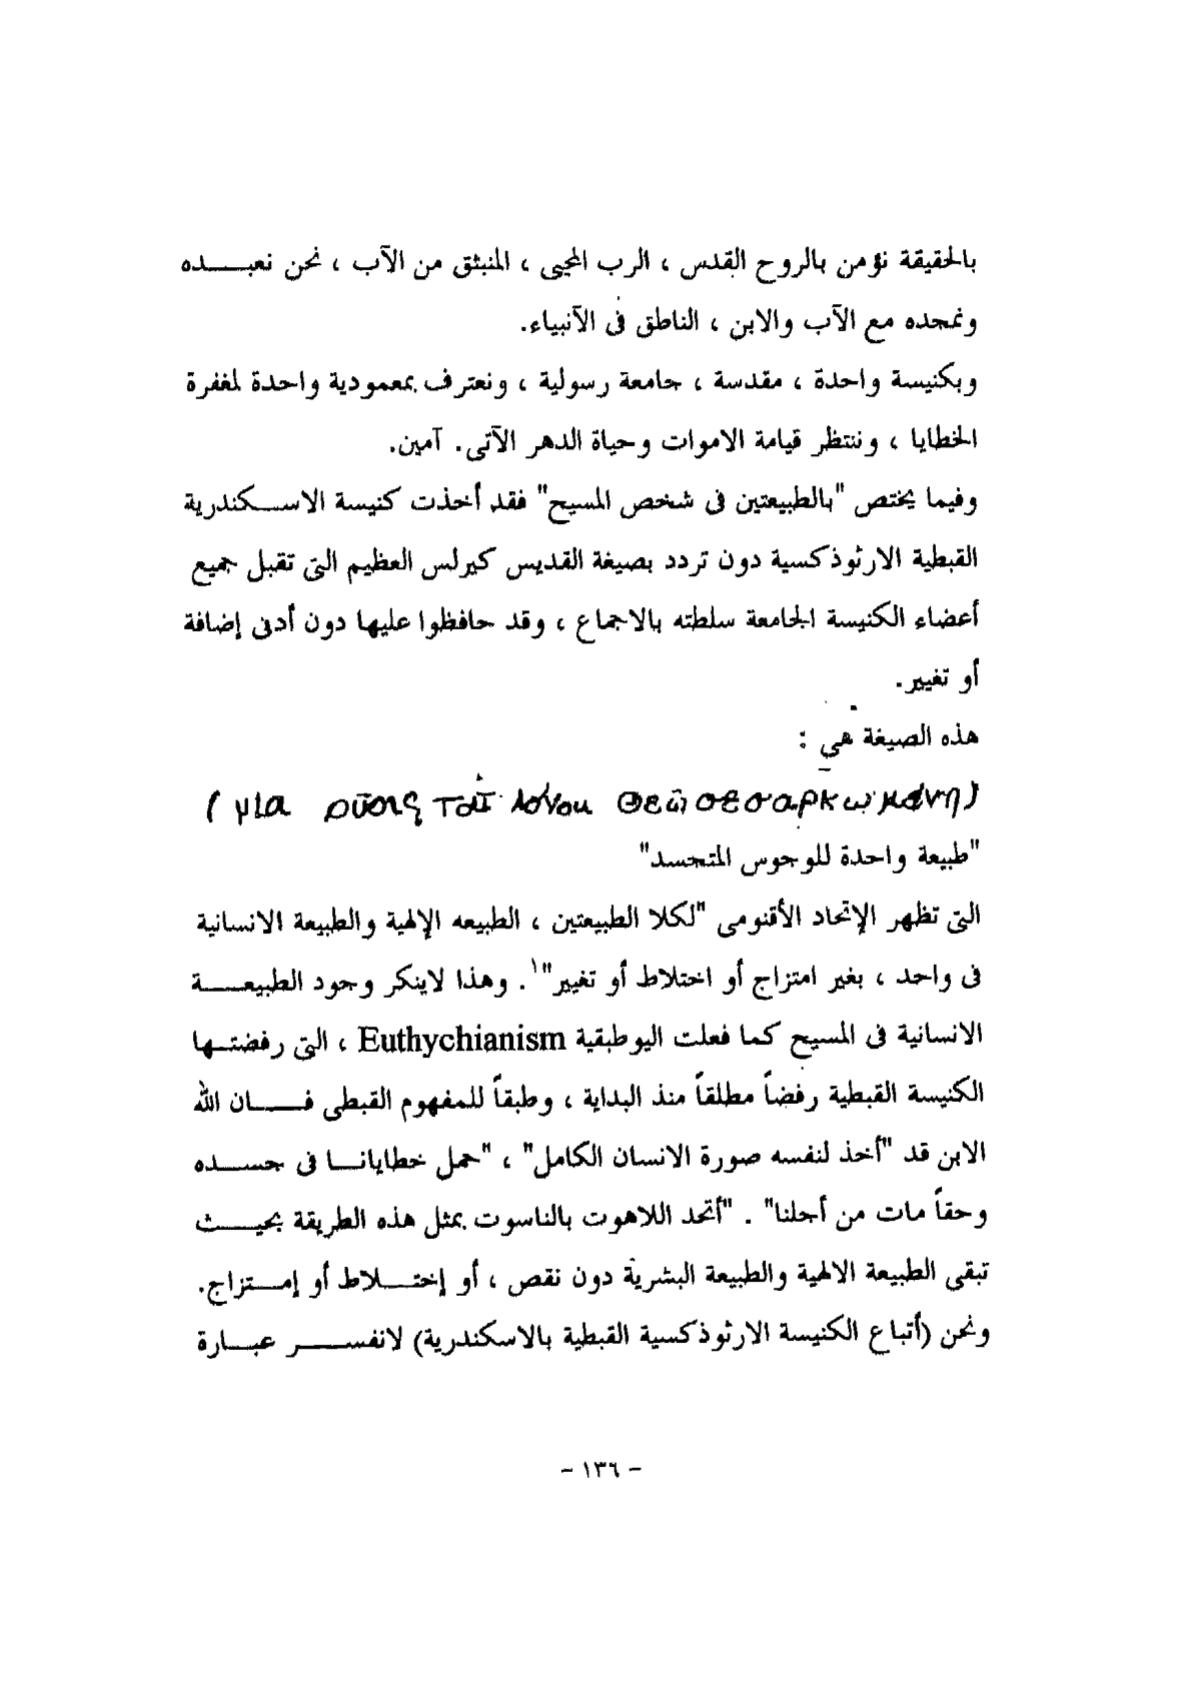 بالحقيقة نؤمن بالروح القدس ، الرب المحيى ، المنبثق من الآب ، نحن نعبـــده
ونمجده مع الآب والابن ، الناطق فى الآنبياء.
وبكنيسة واحدة ، مقدسة ، جامعة رسولية ، ونعترف بمعمودية واحدة لمغفرة
الخطايا ، وننتظر قيامة الاموات وحياة الدهر الآتى. آمين.
وفيما يختص "بالطبيعتين فى شخص المسيح" فقد أخذت كنيسة الاســكندرية
القبطية الارثوذكسية دون تردد بصيغة القديس كيرلس العظيم التى تقبل جميع
أعضاء الكنيسة الجامعة سلطته بالاجماع ، وقد حافظوا عليها دون أدنى إضافة
أو تغيير.
هذه الصيغة هي :
(μια ρῡσις τοῡ λόνου Θεῶ σεσαρκωμάνη)
"طبيعة واحدة للوجوس المتجسد"
التى تظهر الإتحاد الأقنومى "لكلا الطبيعتين ، الطبيعه الإلهية والطبيعة الانسانية
فى واحد ، بغير امتزاج أو اختلاط أو تغيير"١. وهذا لاينكر وجود الطبيعـــة
الانسانية فى المسيح كما فعلت اليوطبقية Euthychianism ، التى رفضتــها
الكنيسة القبطية رفضاً مطلقاً منذ البداية ، وطبقاً للمفهوم القبطى فـــان الله
الابن قد "أخذ لنفسه صورة الانسان الكامل" ، "حمل خطايانــا فى جســده
وحقاً مات من أجلنا" . "أتحد اللاهوت بالناسوت بمثل هذه الطريقة بحيـــث
تبقى الطبيعة الالهية والطبيعة البشرية دون نقص ، أو إختـــلاط أو إمـــتزاج.
ونحن (أتباع الكنيسة الارثوذكسية القبطية بالاسكندرية) لانفســـر عبـــارة
- ١٣٦ -